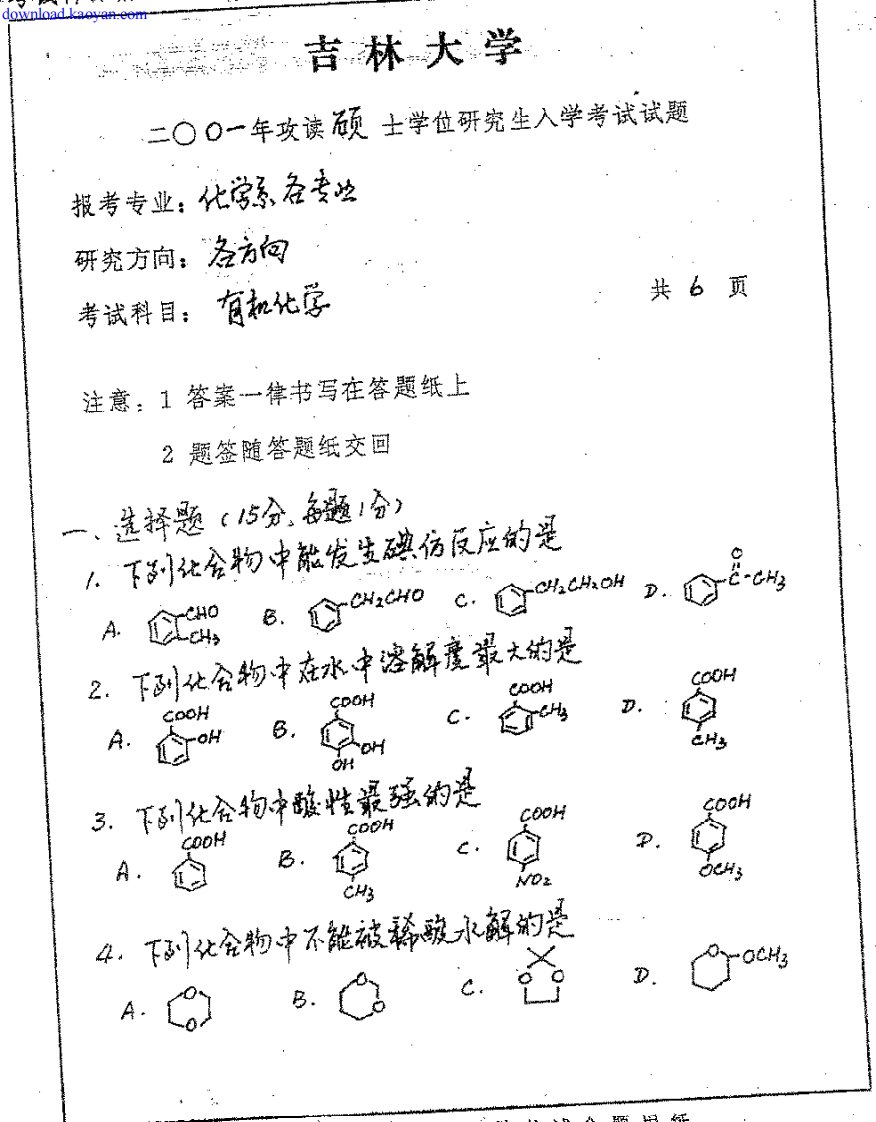 download.kaoyan.com
吉林大学
二〇〇一年攻读硕士学位研究生入学考试试题
报考专业：化学系各专业
研究方向：各方向
考试科目：有机化学
共 6 页
注意：1 答案一律书写在答题纸上
2 题签随答题纸交回
一、选择题（15分，每题1分）
1. 下列化合物中能发生碘仿反应的是
A. CHO CH3 B. CH2CHO C. CH2CH2OH D. O C-CH3
2. 下列化合物中在水中溶解度最大的是
A. COOH OH B. COOH OH OH C. COOH CH3 D. COOH CH3
3. 下列化合物中酸性最强的是
A. COOH B. COOH CH3 C. COOH NO2 D. COOH OCH3
4. 下列化合物中不能被稀酸水解的是
A. O O B. O O C. O O D. O OCH3